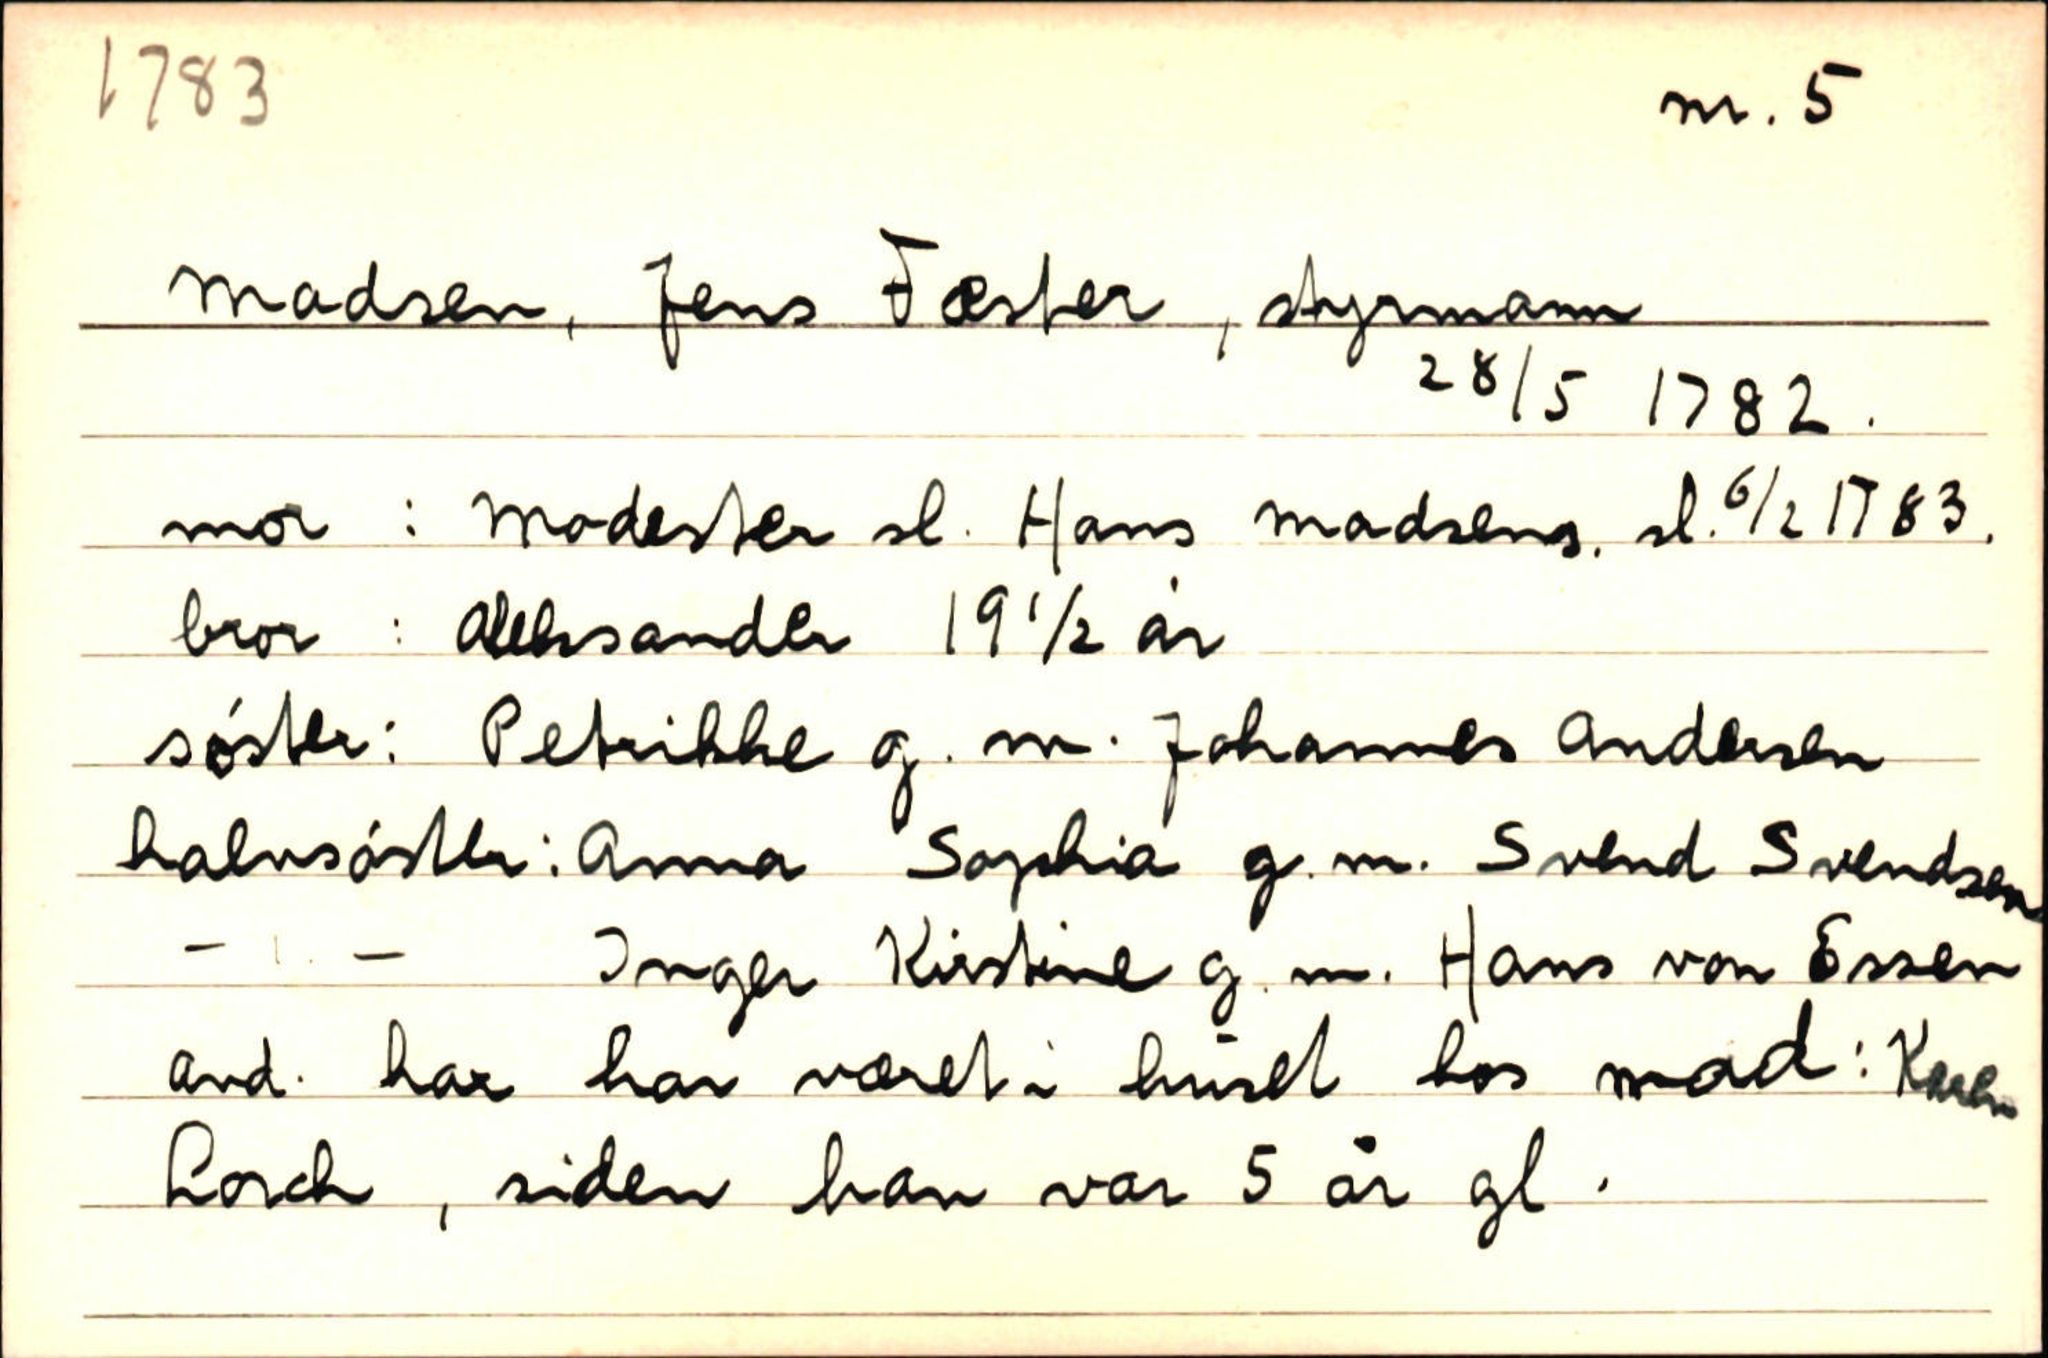 1783 nr. 5
Madsen, Jens Fæster, styrmann
28/5 1782.
mor : Modester sl. Hans Madsens. sl. 6/2 1783.
bror : Aleksander 19 1/2 år
søster: Petrikke g. m. Johannes Andersen
halvsøster: Anna Sophia g. m. Svend Svendsen
— " — Inger Kirstine g. m. Hans von Essen
avd. har har været i huset hos mad: Karen
Lorch, siden han var 5 år gl.